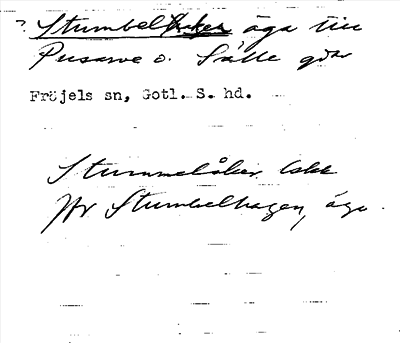 ? Stumbelhaken äga till
Pusarve o. Sälle gdar
Fröjels sn, Gotl. S. hd.
Stummelåker
Jfr Stumbelhagen, äga.